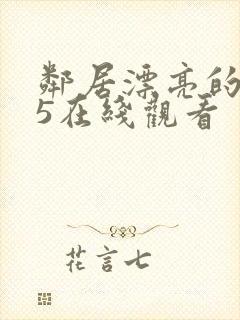 鄰居漂亮的
5在綫觀看
花言七